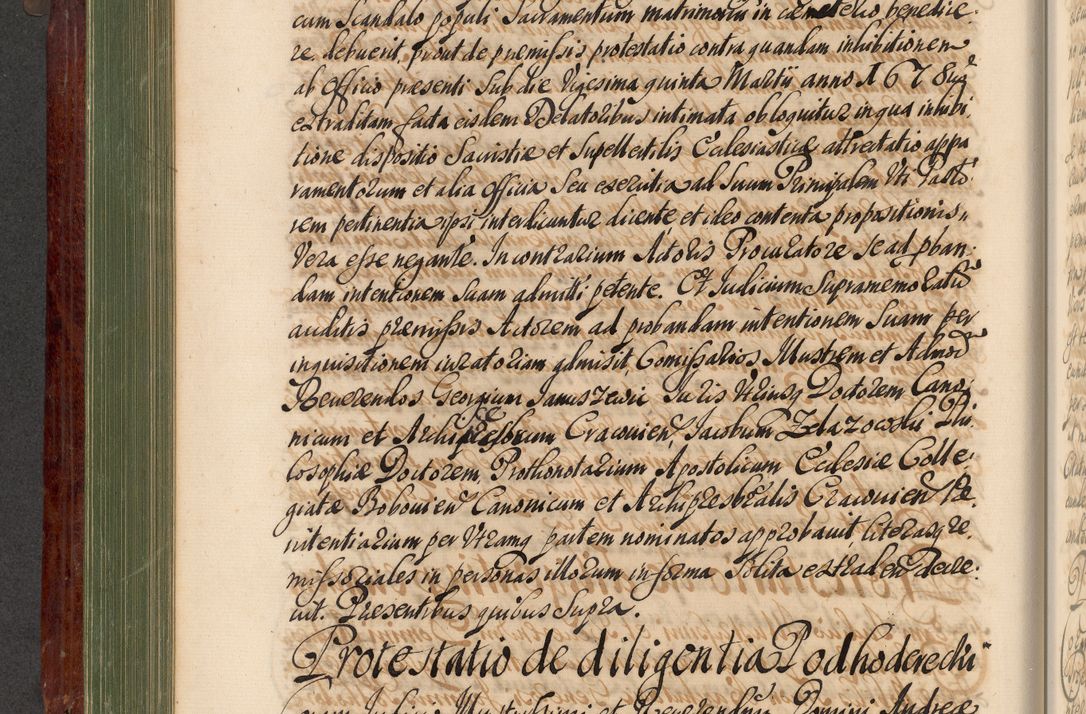 cum Scandalo populi Sacramentum matrimonii in cœmeterio benedice-
re debuerit, prout de premissis protestatio contra quandam inhibitionem
ab Officio præsenti sub die Vigesima quinta Martii anno 1678
extraditam facta eisdem Delatoribus intimata obloquitur in qua inhibi-
tione dispositio Sacristiæ et Supellectilis Ecclesiasticæ attrectatio appa
ramentorum et alia Officia seu exercitia ad Suum Principalem Uti Pasto
rem pertinentia ipsi interdicantur dicente et ideo contenta propositionis
Vera esse negante. In contrarium Actoris Procuratore se ad proban-
dam intentionem suam admitti petente. Et Judicium Supramemoratū
auditis premissis Actorem ad probandam intentionem Suam per
inquisitionem iuratoriam admisit, Comissarios Illustrem et Admod
Reverendos Georgium Januszewic Juris Utriusq Doctorem Cano-
nicum et Archipresbrum Cracovien, Jacobum Zelazowski Phi-
losophiæ Doctorem, Prothonotarium Apostolicum Ecclesiæ Colle-
giatæ Bobovien Canonicum et Archipresbralis Cracovien Pæ-
nitentiarium per Utramq partem nominatos approbavit literasq re-
missoriales in personas illorum in forma Solita extraden decre-
vit. Præsentibus quibus Supra.
Protestatio de diligentia Podhoderechi
Coram Iudicio Illustrissimi et Reverendissi Domini Andreæ